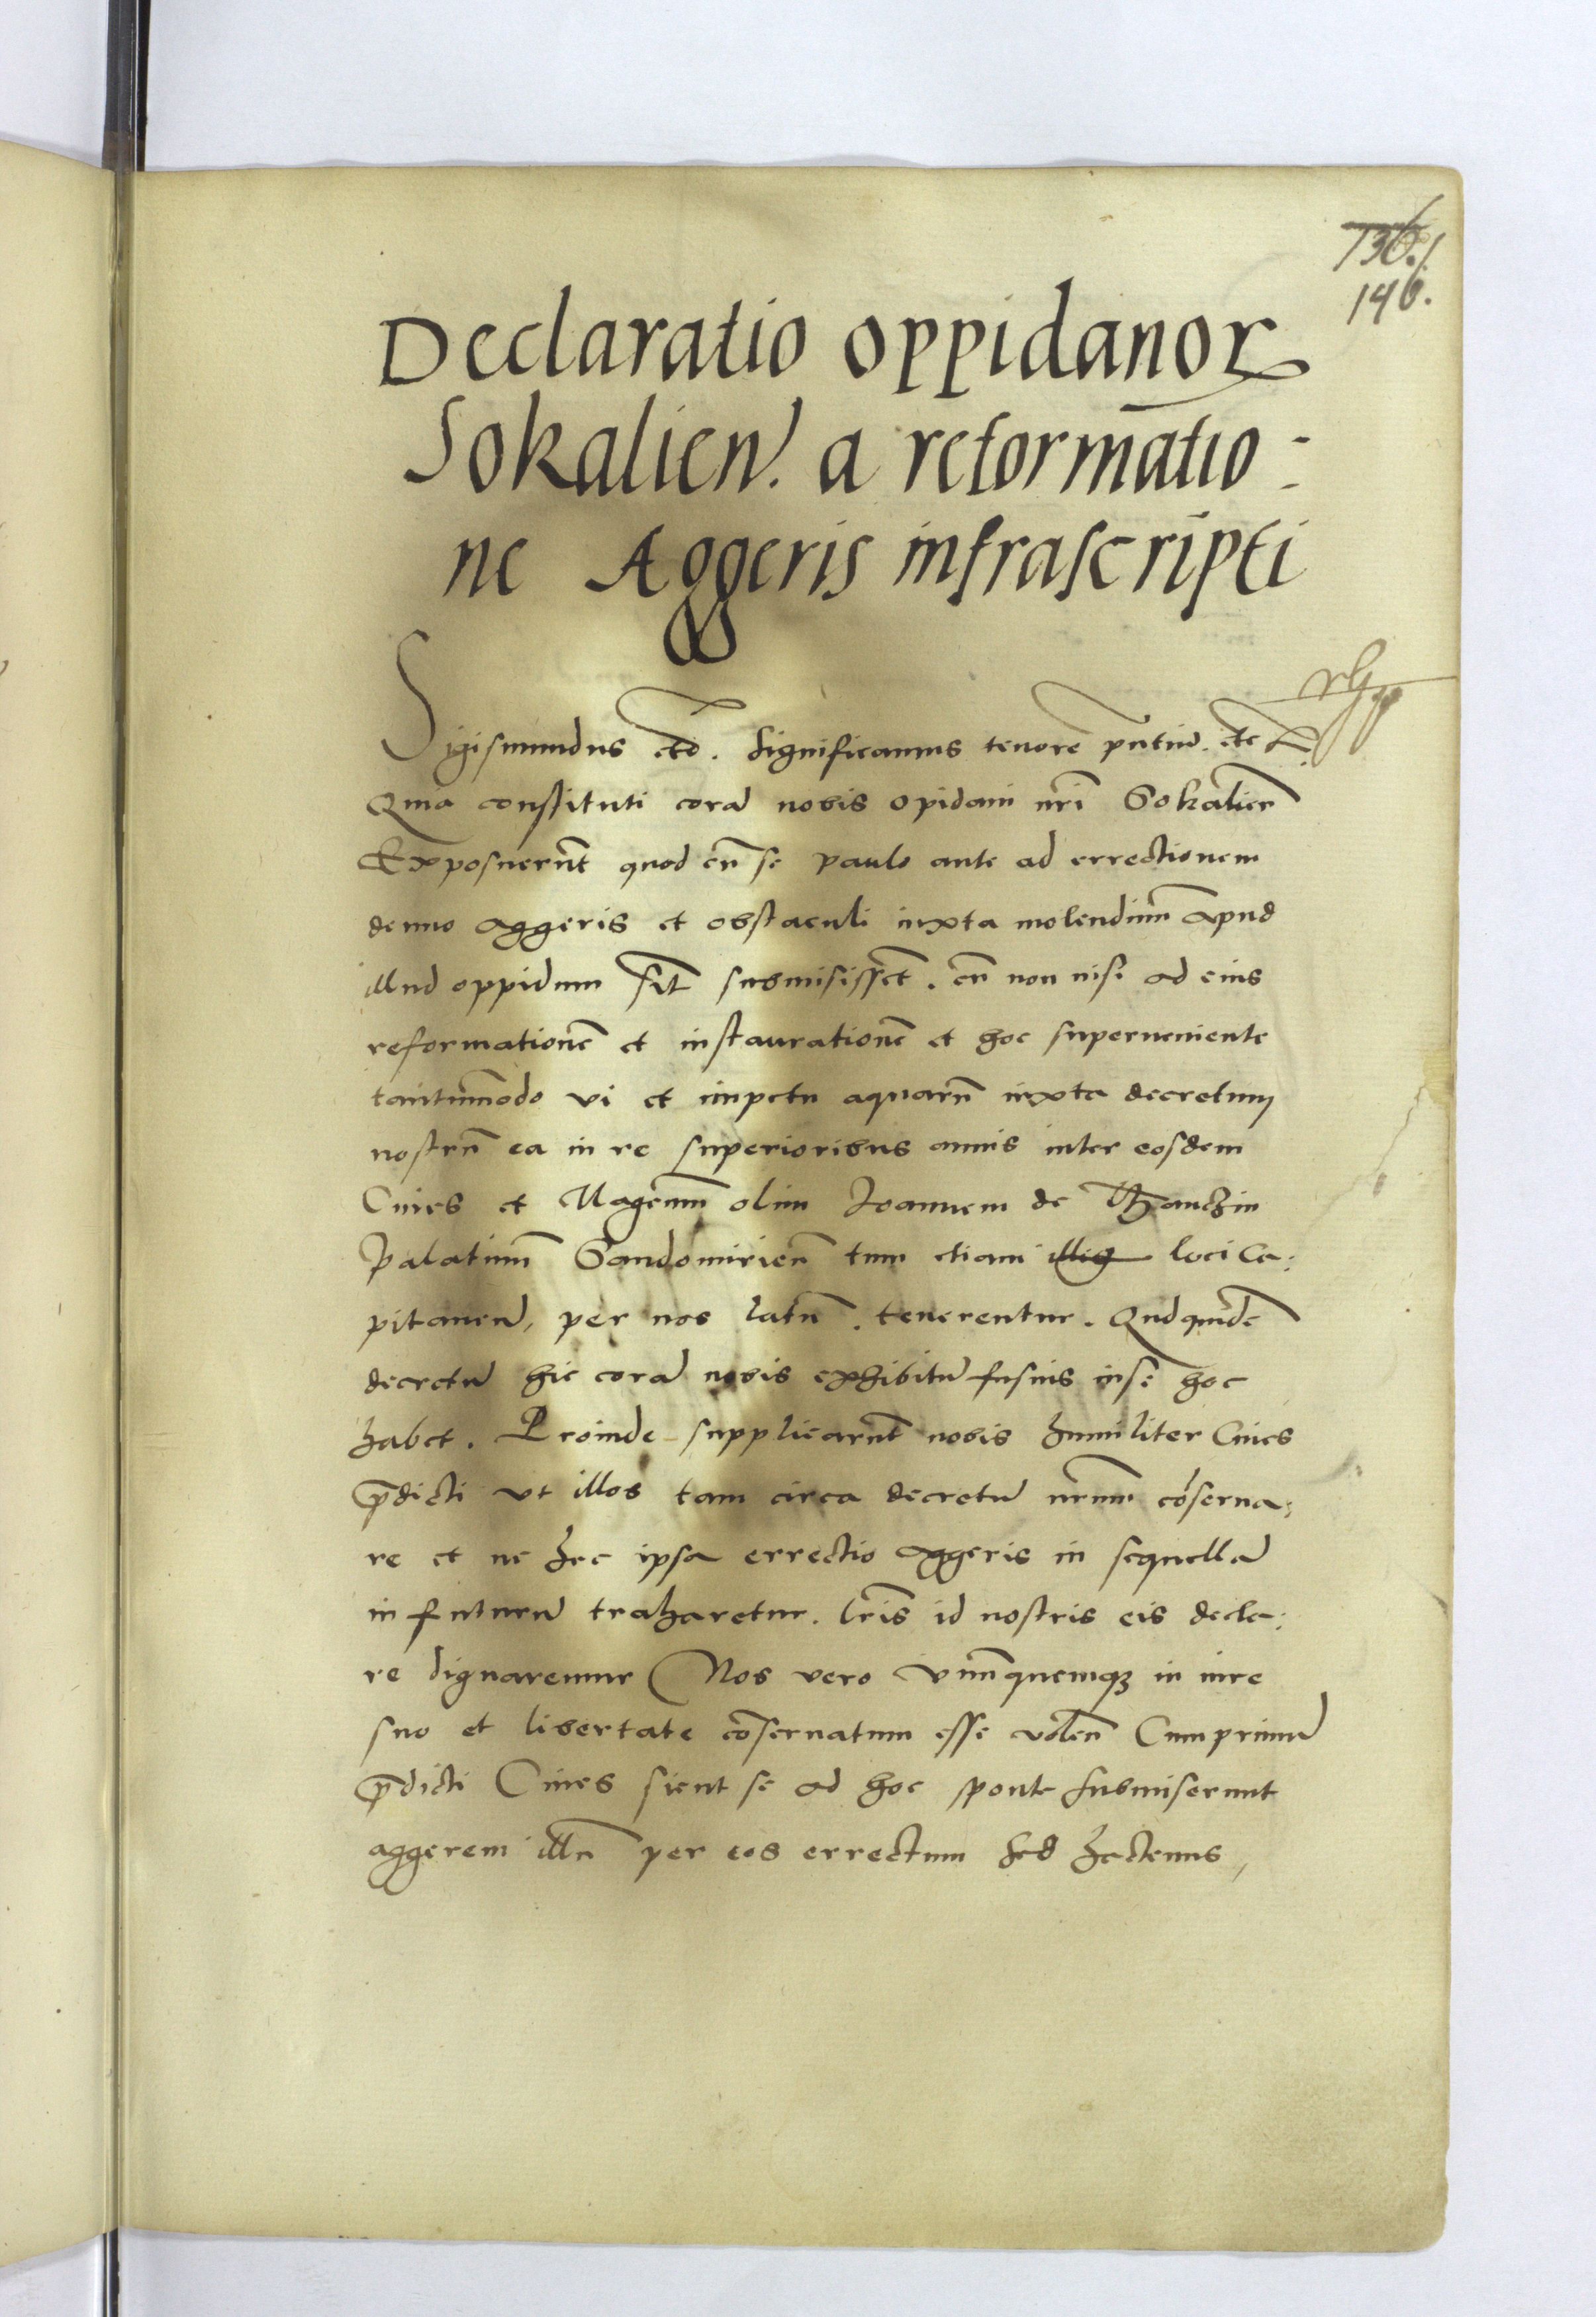 136.
146.
Declaratio oppidanoꝝ
Sokalien̄. a reformatio-
ne Aggeris infrascripti
Sigismundus etc. Significamus tenore pn̄tiū. etc
Quia constituti corā nobis opidani nr̄i Sokalien̄
Exposuerūt quod cū se paulo ante ad errectionem
denuo aggeris et obstaculi iuxta molendinū apud
illud oppidum sit̄ submisissēt. cū non nisi ad eius
reformationē et instaurationē et hoc superueniente
tantūmodo vi et impetu aquarū iuxta decretum
nostrū ea in re superioribus annis inter eosdem
Ciues et Magcūm olim Joannem de Thanczin
Palatinū Sandomirien̄ tum etiam loci Ca:
pitaneū, per nos latū. tenerentur. Qudquidē
decretū hic corā nobis exhibitū fusius in se hoc
habet. Proinde supplicarūt nobis humiliter Ciues
p̄dicti vt illos tam circa decretū nrūm cōserua:
re et ne hec ipsa errectio aggeris in sequellā
in futurū traharetur. lr̄is id nostris eis decla:
re dignaremur Nos vero vnūquemqꝫ in iure
suo et libertate cōseruatum esse volen̄ Cum primū
p̄dicti Ciues sicut se ad hoc sponte submiserunt
aggerem illū per eos errectum sed hactenus,